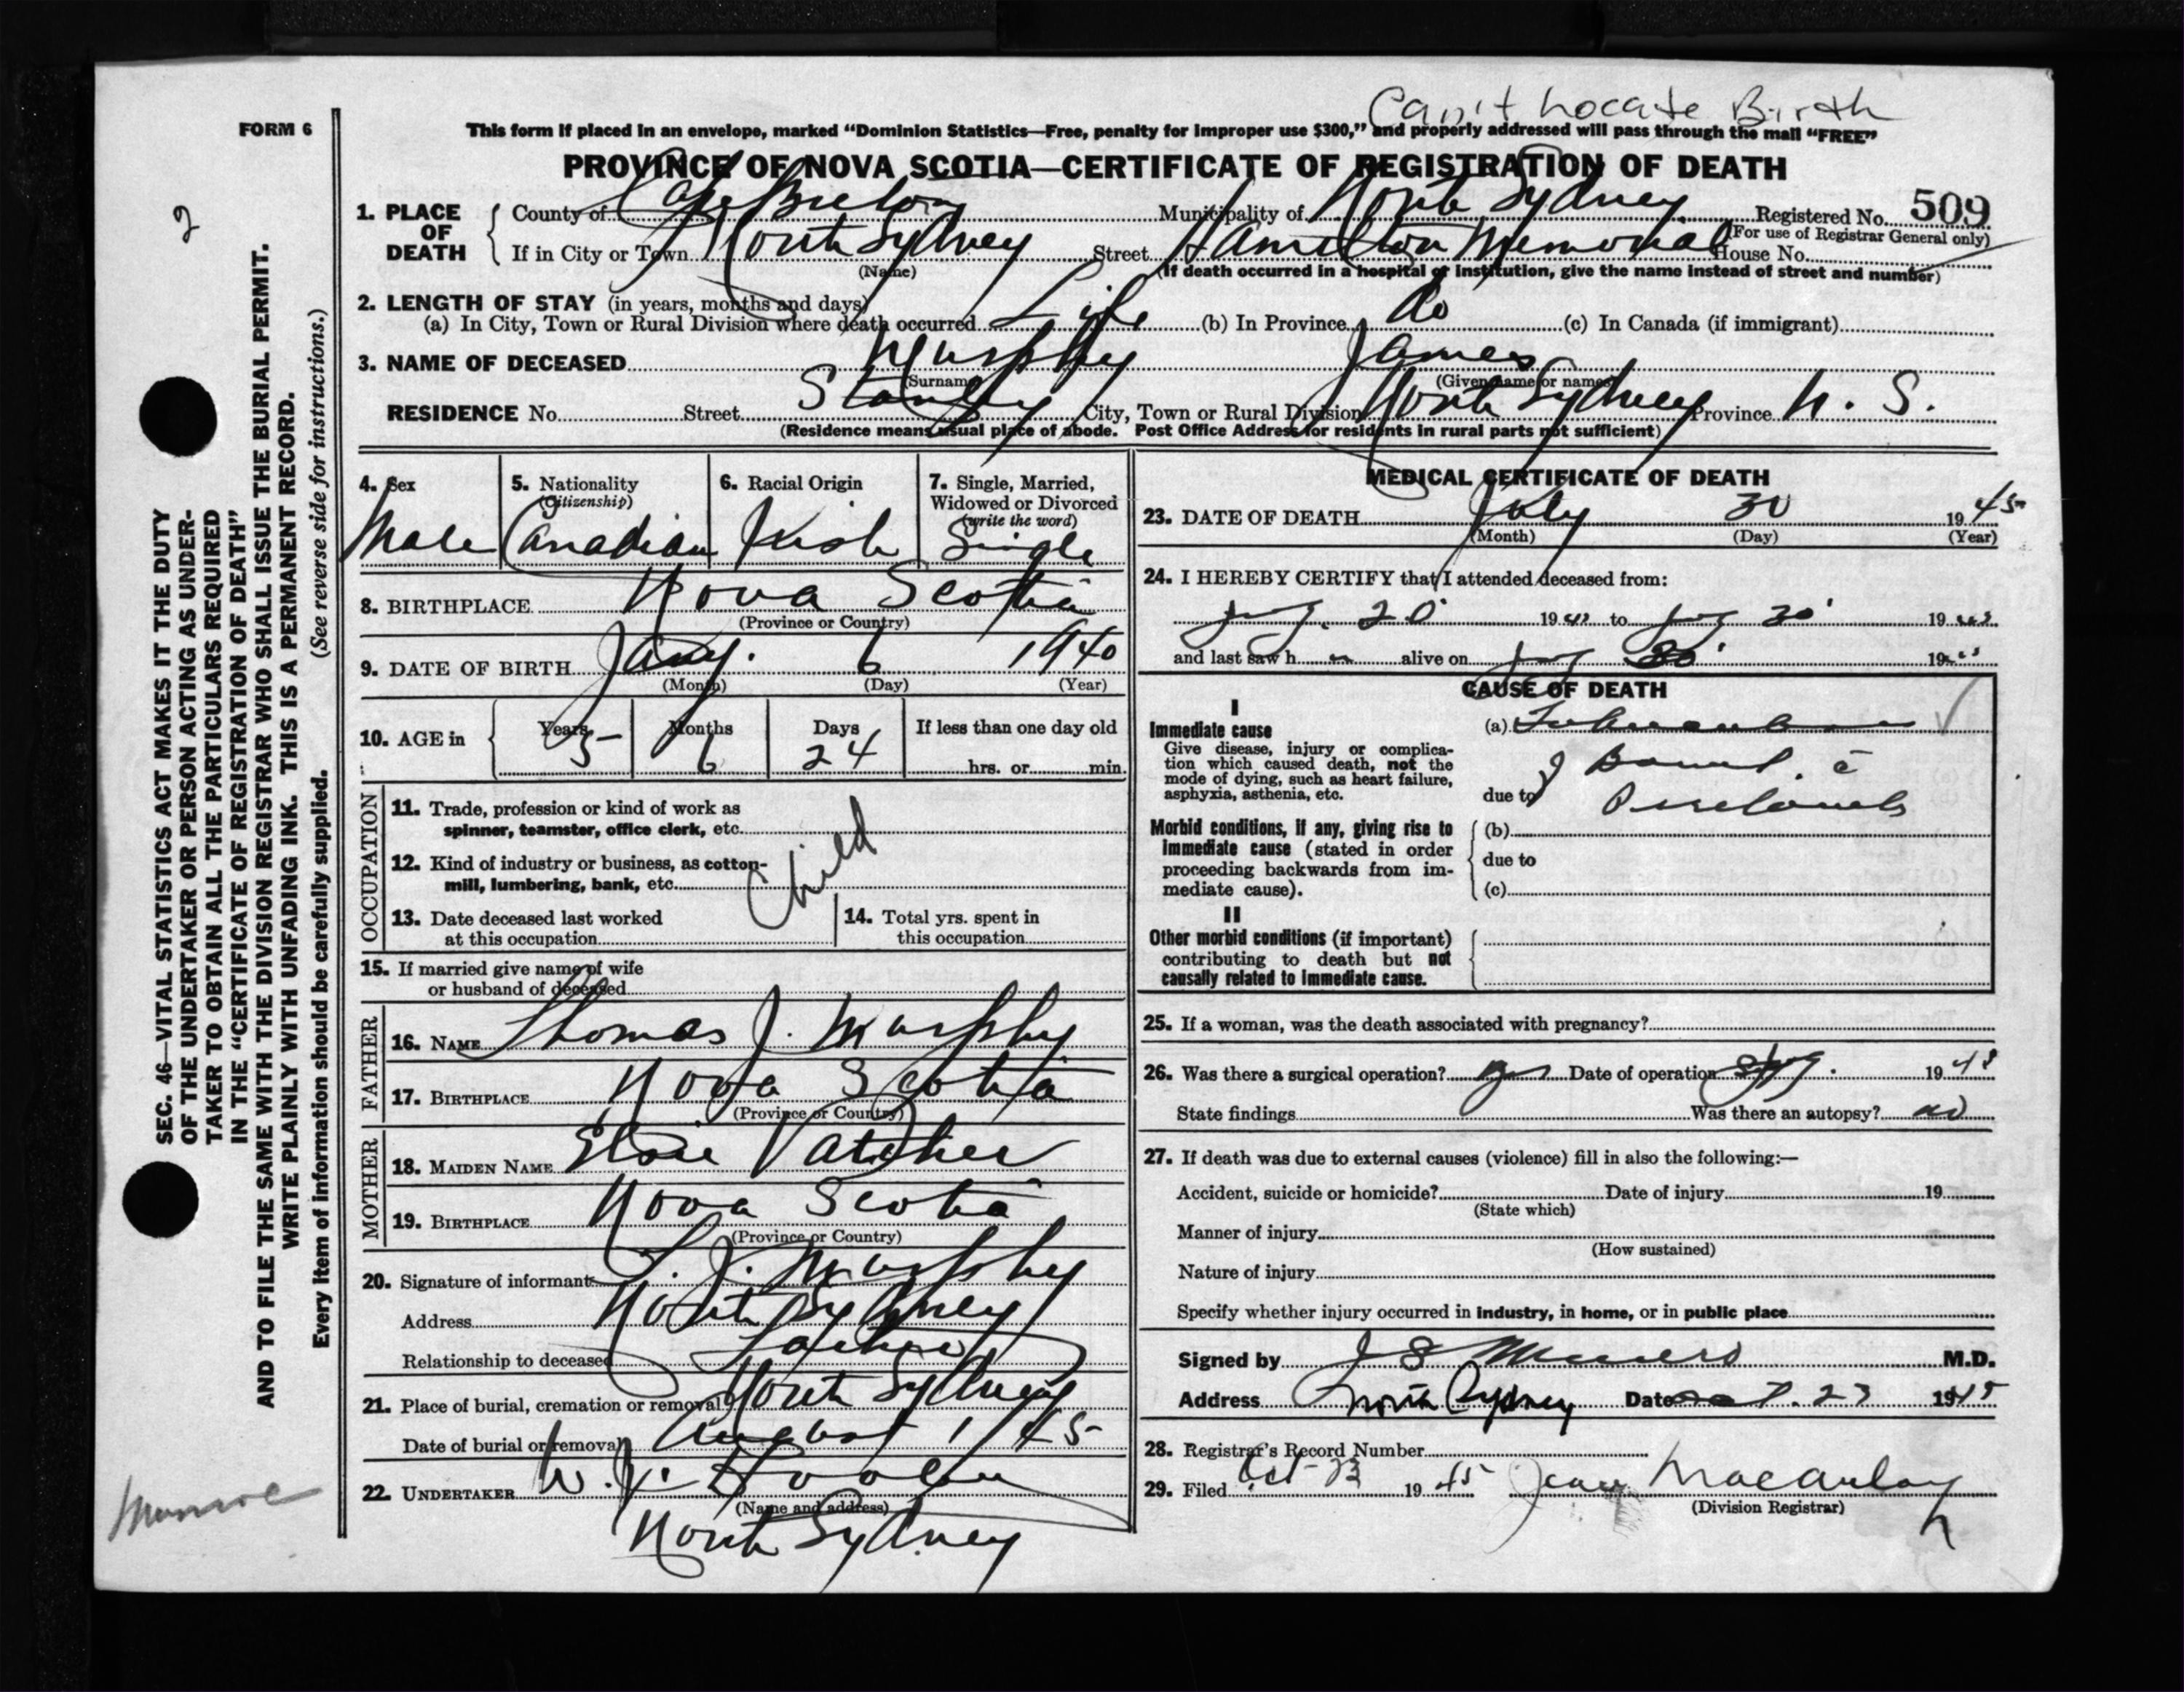 Can't Locate Birth
FORM 6
This form if placed in an envelope, marked "Dominion Statistics—Free, penalty for improper use $300," and properly addressed will pass through the mail "FREE"
PROVINCE OF NOVA SCOTIA—CERTIFICATE OF REGISTRATION OF DEATH
1. PLACE OF DEATH
County of Cape Breton Municipality of North Sydney Registered No. 509
(For use of Registrar General only)
If in City or Town North Sydney Street Hamilton Memorial House No.
(Name) (If death occurred in a hospital or institution, give the name instead of street and number)
2. LENGTH OF STAY (in years, months and days)
(a) In City, Town or Rural Division where death occurred Life (b) In Province do (c) In Canada (if immigrant)
3. NAME OF DECEASED Murphy James
(Surname) (Given name or names)
RESIDENCE No. Street Stanley City, Town or Rural Division North Sydney Province N. S.
(Residence means usual place of abode. Post Office Address for residents in rural parts not sufficient)
4. Sex
Male
5. Nationality
(Citizenship)
Canadian
6. Racial Origin
Irish
7. Single, Married,
Widowed or Divorced
(write the word)
Single
8. BIRTHPLACE Nova Scotia
(Province or Country)
9. DATE OF BIRTH Jany. 6 1940
(Month) (Day) (Year)
10. AGE in
Years Months Days If less than one day old
5 6 24 hrs. or min.
OCCUPATION
11. Trade, profession or kind of work as
spinner, teamster, office clerk, etc.
12. Kind of industry or business, as cotton-
mill, lumbering, bank, etc.
Child
13. Date deceased last worked
at this occupation
14. Total yrs. spent in
this occupation
15. If married give name of wife
or husband of deceased
FATHER
16. NAME Thomas J. Murphy
17. BIRTHPLACE Nova Scotia
(Province or Country)
MOTHER
18. MAIDEN NAME Elsie Vatcher
19. BIRTHPLACE Nova Scotia
(Province or Country)
20. Signature of informant T. J. Murphy
Address North Sydney
Relationship to deceased Father
21. Place of burial, cremation or removal North Sydney
Date of burial or removal August 1 45
22. UNDERTAKER W. J. Dooley
(Name and address)
North Sydney
MEDICAL CERTIFICATE OF DEATH
23. DATE OF DEATH July 30 1945
(Month) (Day) (Year)
24. I HEREBY CERTIFY that I attended deceased from:
20 19 to 30 19
and last saw h alive on 30 19
CAUSE OF DEATH
I
Immediate cause
Give disease, injury or complica-
tion which caused death, not the
mode of dying, such as heart failure,
asphyxia, asthenia, etc.
(a)
due to
Morbid conditions, if any, giving rise to
immediate cause (stated in order
proceeding backwards from im-
mediate cause).
(b)
due to
(c)
II
Other morbid conditions (if important)
contributing to death but not
causally related to immediate cause.
25. If a woman, was the death associated with pregnancy?
26. Was there a surgical operation? yes Date of operation 19
State findings Was there an autopsy? no
27. If death was due to external causes (violence) fill in also the following:—
Accident, suicide or homicide? Date of injury 19
(State which)
Manner of injury
(How sustained)
Nature of injury
Specify whether injury occurred in industry, in home, or in public place
Signed by M.D.
Address North Sydney Date 23 1945
28. Registrar's Record Number
29. Filed Oct 23 1945 Macaulay
(Division Registrar)
2
SEC. 46—VITAL STATISTICS ACT MAKES IT THE DUTY
OF THE UNDERTAKER OR PERSON ACTING AS UNDER-
TAKER TO OBTAIN ALL THE PARTICULARS REQUIRED
IN THE "CERTIFICATE OF REGISTRATION OF DEATH"
AND TO FILE THE SAME WITH THE DIVISION REGISTRAR WHO SHALL ISSUE THE BURIAL PERMIT.
WRITE PLAINLY WITH UNFADING INK. THIS IS A PERMANENT RECORD.
Every item of information should be carefully supplied. (See reverse side for instructions.)
Munroe